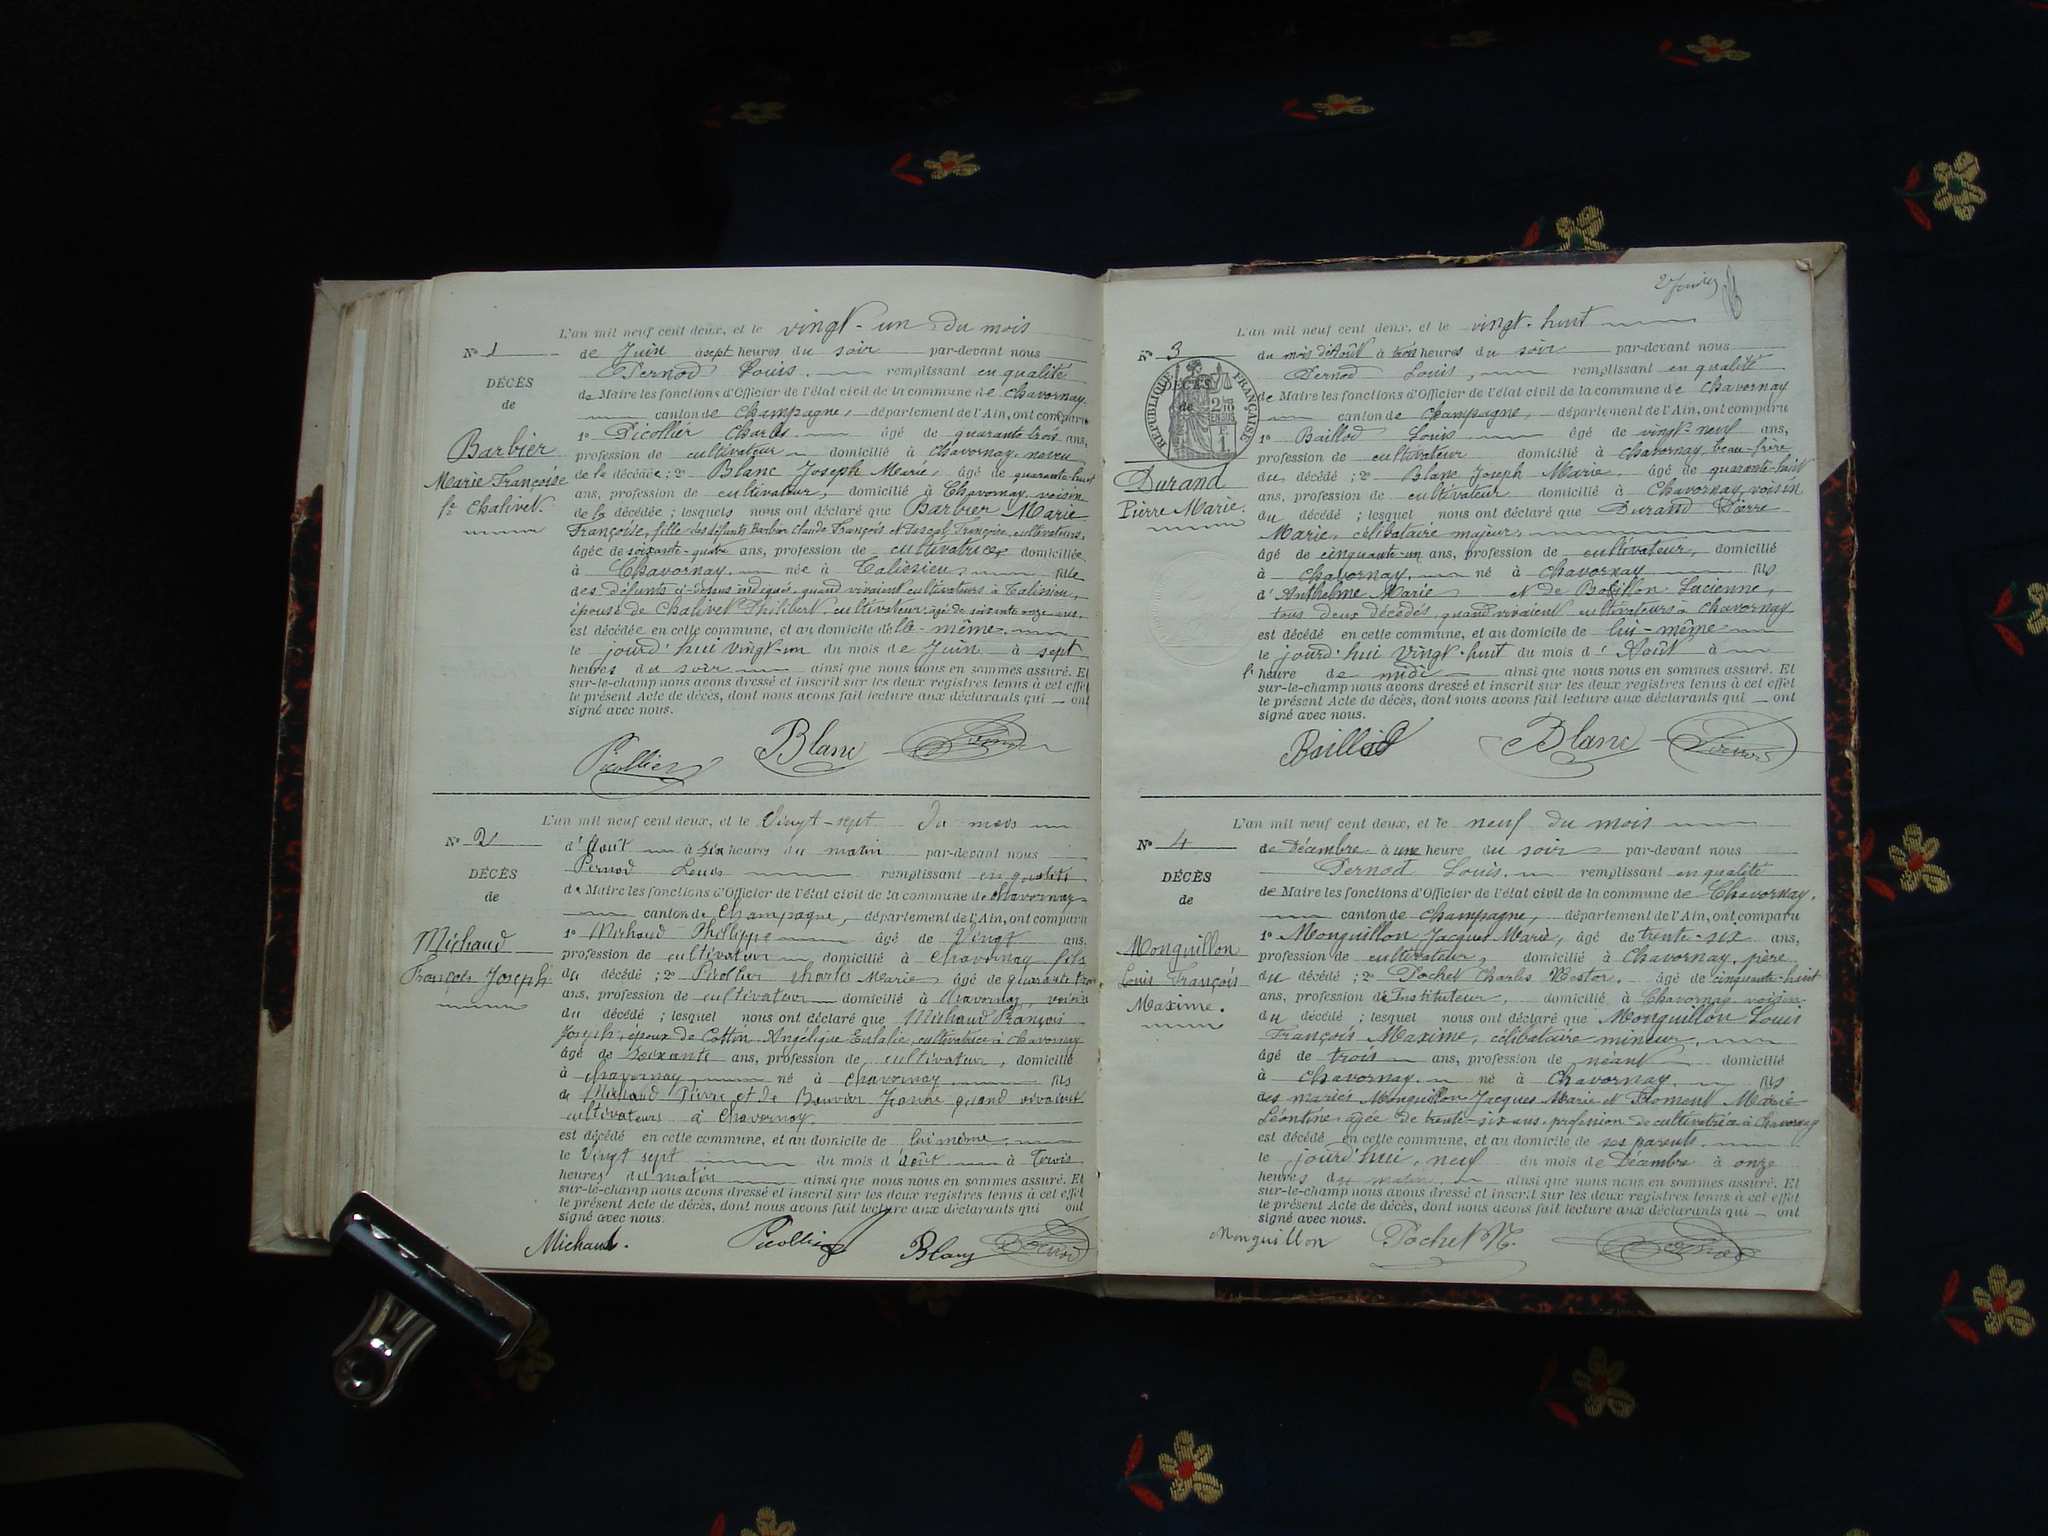 L'an mil neuf cent deux, et le vingt-un du mois
N° 1
de Juin à sept heures du soir par-devant nous
Pernod Louis. remplissant en qualité
DÉCÈS
de Maire les fonctions d'Officier de l'état civil de la commune de Chavornay.
de
canton de Champagne, département de l'Ain, ont comparu
1° Picollier Charles. âgé de quarante trois ans,
Barbier
profession de cultivateur domicilié à Chavornay, neveu
Marie Françoise
de la décédée ; 2° Blanc Joseph Marie, âgé de quarante-huit
fe Chalivet.
ans, profession de cultivateur, domicilié à Chavornay, voisin
de la décédée ; lesquels nous ont déclaré que Barbier Marie
Françoise, fille des défunts Barbier Claude François et Pascal Françoise, cultivateurs,
âgée de soixante-quatre ans, profession de cultivatrice domiciliée
à Chavornay. née à Talissieu, fille
des défunts ci-dessus indiqués, quand vivaient cultivateurs à Talissieu,
épouse de Chalivet Philibert, cultivateur âgé de soixante onze ans.
est décédée en cette commune, et au domicile d'elle-même.
le jourd'hui vingt-un du mois de Juin à sept
heures du soir ainsi que nous nous en sommes assuré. Et
sur-le-champ nous avons dressé et inscrit sur les deux registres tenus à cet effet
le présent Acte de décès, dont nous avons fait lecture aux déclarants qui ont
signé avec nous.
Picollier Blanc Pernod
L'an mil neuf cent deux, et le Vingt-sept du mois
N° 2
d'Août à Six heures du matin par-devant nous
Pernod Louis remplissant en qualité
DÉCÈS
de Maire les fonctions d'Officier de l'état civil de la commune de Chavornay
de
canton de Champagne, département de l'Ain, ont comparu
1° Michaud Philippe âgé de Vingt ans,
Michaud
profession de cultivateur domicilié à Chavornay fils
François Joseph
du décédé ; 2° Picollier Charles Marie âgé de quarante trois
ans, profession de cultivateur domicilié à Chavornay, voisin
du décédé ; lesquels nous ont déclaré que Michaud François
Joseph, époux de Cottin Angélique Eulalie, cultivatrice à Chavornay
âgé de Soixante ans, profession de cultivateur, domicilié
à Chavornay né à Chavornay fils
de Michaud Pierre et de Bouvier Jeanne quand vivaient
cultivateurs à Chavornay.
est décédé en cette commune, et au domicile de lui même.
le Vingt sept du mois d'août à Trois
heures du matin ainsi que nous nous en sommes assuré. Et
sur-le-champ nous avons dressé et inscrit sur les deux registres tenus à cet effet
le présent Acte de décès, dont nous avons fait lecture aux déclarants qui ont
signé avec nous.
Michaud. Picollier Blanc Pernod
L'an mil neuf cent deux, et le vingt-huit
N° 3
du mois d'Août à trois heures du soir par-devant nous
Pernod Louis, remplissant en qualité
DÉCÈS
de Maire les fonctions d'Officier de l'état civil de la commune de Chavornay
de
canton de Champagne, département de l'Ain, ont comparu
RÉPUBLIQUE FRANÇAISE
1° Baillod Louis âgé de vingt-neuf ans,
profession de cultivateur domicilié à Chavornay, beau-frère
Durand
du décédé ; 2° Blanc Joseph Marie, âgé de quarante-huit
Pierre Marie.
ans, profession de cultivateur domicilié à Chavornay, voisin
du décédé ; lesquels nous ont déclaré que Durand Pierre
Marie, célibataire majeur,
âgé de cinquante-un ans, profession de cultivateur, domicilié
à Chavornay. né à Chavornay fils
d'Anthelme Marie et de Lucienne,
tous deux décédés, quand vivaient cultivateurs à Chavornay
est décédé en cette commune, et au domicile de lui-même
le jourd'hui vingt-huit du mois d'Août à
l'heure de midi ainsi que nous nous en sommes assuré. Et
sur-le-champ nous avons dressé et inscrit sur les deux registres tenus à cet effet
le présent Acte de décès, dont nous avons fait lecture aux déclarants qui ont
signé avec nous.
Baillod Blanc Pernod
L'an mil neuf cent deux, et le neuf du mois
N° 4
de Décembre à une heure du soir par-devant nous
Pernod Louis. remplissant en qualité
DÉCÈS
de Maire les fonctions d'Officier de l'état civil de la commune de Chavornay.
de
canton de Champagne, département de l'Ain, ont comparu
1° Monguillon Jacques Marie, âgé de trente-six ans,
Monguillon
profession de cultivateur, domicilié à Chavornay, père
Louis François
du décédé ; 2° Pochet Charles Nestor. âgé de cinquante-huit
Maxime.
ans, profession d'Instituteur, domicilié à Chavornay voisin
du décédé ; lesquels nous ont déclaré que Monguillon Louis
François Maxime, célibataire mineur,
âgé de trois ans, profession de néant domicilié
à Chavornay. né à Chavornay. fils
des mariés Monguillon Jacques Marie et Froment Marie
Léontine âgée de trente-six ans, profession de cultivatrice à Chavornay
est décédé en cette commune, et au domicile de ses parents.
le jourd'hui, neuf du mois de Décembre à onze
heures du matin. ainsi que nous nous en sommes assuré. Et
sur-le-champ nous avons dressé et inscrit sur les deux registres tenus à cet effet
le présent Acte de décès, dont nous avons fait lecture aux déclarants qui ont
signé avec nous.
Monguillon Pochet N. Pernod